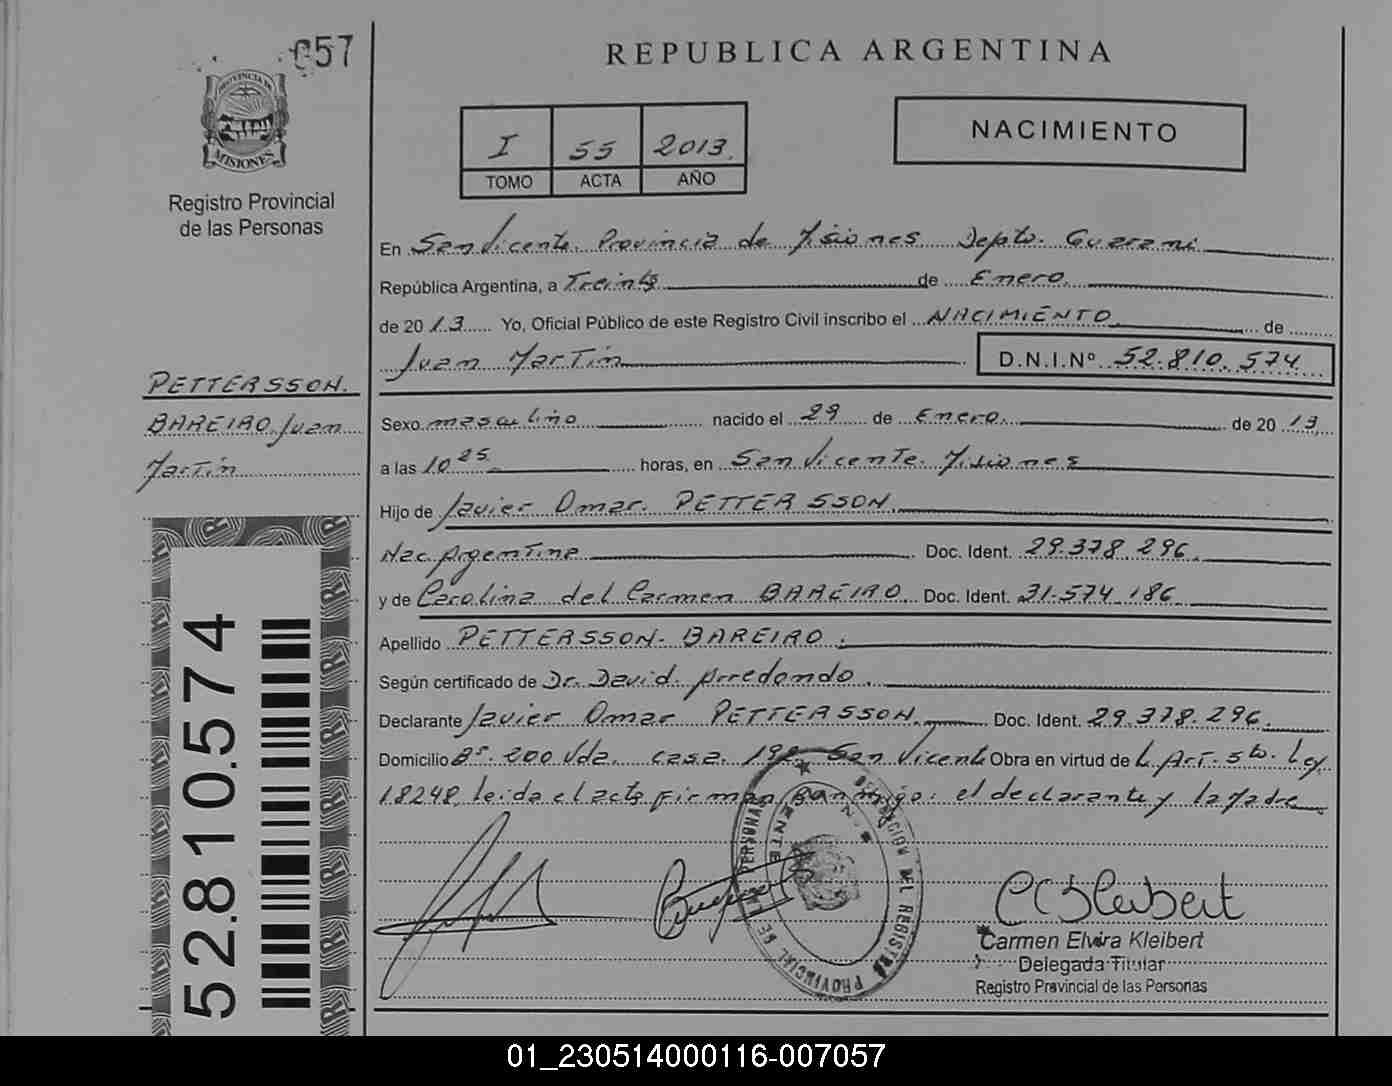 057
PROVINCIA DE
MISIONES
Registro Provincial
de las Personas
REPUBLICA ARGENTINA
I 55 2013.
TOMO ACTA AÑO
NACIMIENTO
En San Vicente. Provincia de Misiones Depto. Guarani
República Argentina, a Treinta de Enero.
de 2013 Yo, Oficial Público de este Registro Civil inscribo el NACIMIENTO de
Juan Martín D.N.I.Nº 52.810.574
PETTERSSON.
BAREIRO Juan
Martín
Sexo masculino nacido el 29 de Enero. de 2013
a las 10 25 horas, en San Vicente. Misiones
Hijo de Javier Omar. PETTERSSON.
Nac. Argentina Doc. Ident. 29.378.296.
y de Carolina del Carmen BAREIRO Doc. Ident. 31.574.186
Apellido PETTERSSON-BAREIRO.
Según certificado de Dr. David. Arredondo.
Declarante Javier Omar PETTERSSON. Doc. Ident. 29.378.296.
Domicilio Bº. 200 Vda. casa. San Vicente Obra en virtud de L. Art. 5to. Ley
18248, leida el acta firman conmigo: el declarante y la Madre
52.810.574
DELEGACION DEL REGISTRO PROVINCIAL DE LAS PERSONAS
SAN VICENTE
Carmen Elvira Kleibert
Delegada Titular
Registro Provincial de las Personas
01_230514000116-007057